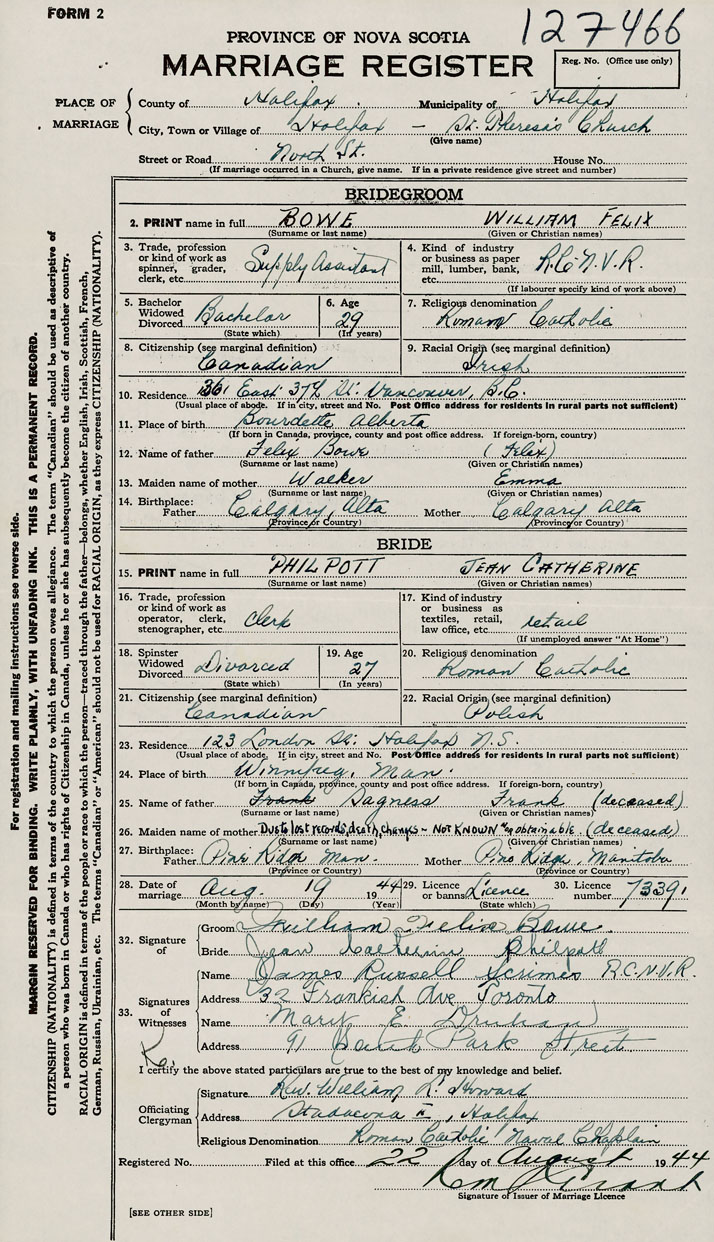 FORM 2
127466
PROVINCE OF NOVA SCOTIA
MARRIAGE REGISTER
Reg. No. (Office use only)
PLACE OF MARRIAGE
County of Halifax Municipality of Halifax
City, Town or Village of Halifax - St. Theresa's Church
(Give name)
Street or Road North St. House No.
(If marriage occurred in a Church, give name. If in a private residence give street and number)
BRIDEGROOM
2. PRINT name in full BOWE WILLIAM FELIX
(Surname or last name) (Given or Christian names)
3. Trade, profession or kind of work as spinner, grader, clerk, etc. Supply Assistant
4. Kind of industry or business as paper mill, lumber, bank, etc. R.C.N.V.R.
(If labourer specify kind of work above)
5. Bachelor Widowed Divorced Bachelor
(State which)
6. Age 29
(In years)
7. Religious denomination Roman Catholic
8. Citizenship (see marginal definition) Canadian
9. Racial Origin (see marginal definition) Irish
10. Residence 361 East 37th St. Vancouver, B.C.
(Usual place of abode. If in city, street and No. Post Office address for residents in rural parts not sufficient)
11. Place of birth Bourdette Alberta
(If born in Canada, province, county and post office address. If foreign-born, country)
12. Name of father Felix Bowe (Felix)
(Surname or last name) (Given or Christian names)
13. Maiden name of mother Walker Emma
(Surname or last name) (Given or Christian names)
14. Birthplace: Father Calgary, Alta Mother Calgary Alta
(Province or Country) (Province or Country)
BRIDE
15. PRINT name in full PHILPOTT JEAN CATHERINE
(Surname or last name) (Given or Christian names)
16. Trade, profession or kind of work as operator, clerk, stenographer, etc. clerk
17. Kind of industry or business as textiles, retail, law office, etc. retail
(If unemployed answer "At Home")
18. Spinster Widowed Divorced Divorced
(State which)
19. Age 27
(In years)
20. Religious denomination Roman Catholic
21. Citizenship (see marginal definition) Canadian
22. Racial Origin (see marginal definition) Polish
23. Residence 123 London St. Halifax N.S.
(Usual place of abode. If in city, street and No. Post Office address for residents in rural parts not sufficient)
24. Place of birth Winnipeg, Man.
(If born in Canada, province, county and post office address. If foreign-born, country)
25. Name of father Frank Sagness Frank (deceased)
(Surname or last name) (Given or Christian names)
26. Maiden name of mother Due to lost records, death, changes - NOT KNOWN unobtainable. (deceased)
(Surname or last name) (Given or Christian names)
27. Birthplace: Father Pine Ridge Man. Mother Pine Ridge, Manitoba
(Province or Country) (Province or Country)
28. Date of marriage Aug. 19 1944
(Month by name) (Day) (Year)
29. Licence or banns Licence
(State which)
30. Licence number 73391
32. Signature of
Groom William Felix Bowe
Bride Jean Catherine Philpott
33. Signatures of Witnesses
Name James Russell Grimes R.C.N.V.R.
Address 32 Frankish Ave Toronto
Name Mary E. Druhan
Address 91 Park Street
I certify the above stated particulars are true to the best of my knowledge and belief.
Officiating Clergyman
Signature Rev. William L. Howard
Address Stadacona II, Halifax
Religious Denomination Roman Catholic Naval Chaplain
Registered No. Filed at this office 22 day of August 1944
Signature of Issuer of Marriage Licence
[SEE OTHER SIDE]
For registration and mailing instructions see reverse side.
MARGIN RESERVED FOR BINDING. WRITE PLAINLY, WITH UNFADING INK. THIS IS A PERMANENT RECORD.
CITIZENSHIP (NATIONALITY) is defined in terms of the country to which the person owes allegiance. The term "Canadian" should be used as descriptive of
a person who was born in Canada or who has rights of Citizenship in Canada, unless he or she has subsequently become the citizen of another country.
RACIAL ORIGIN is defined in terms of the people or race to which the person—traced through the father—belongs, whether English, Irish, Scottish, French,
German, Russian, Ukrainian, etc. The terms "Canadian" or "American" should not be used for RACIAL ORIGIN, as they express CITIZENSHIP (NATIONALITY).